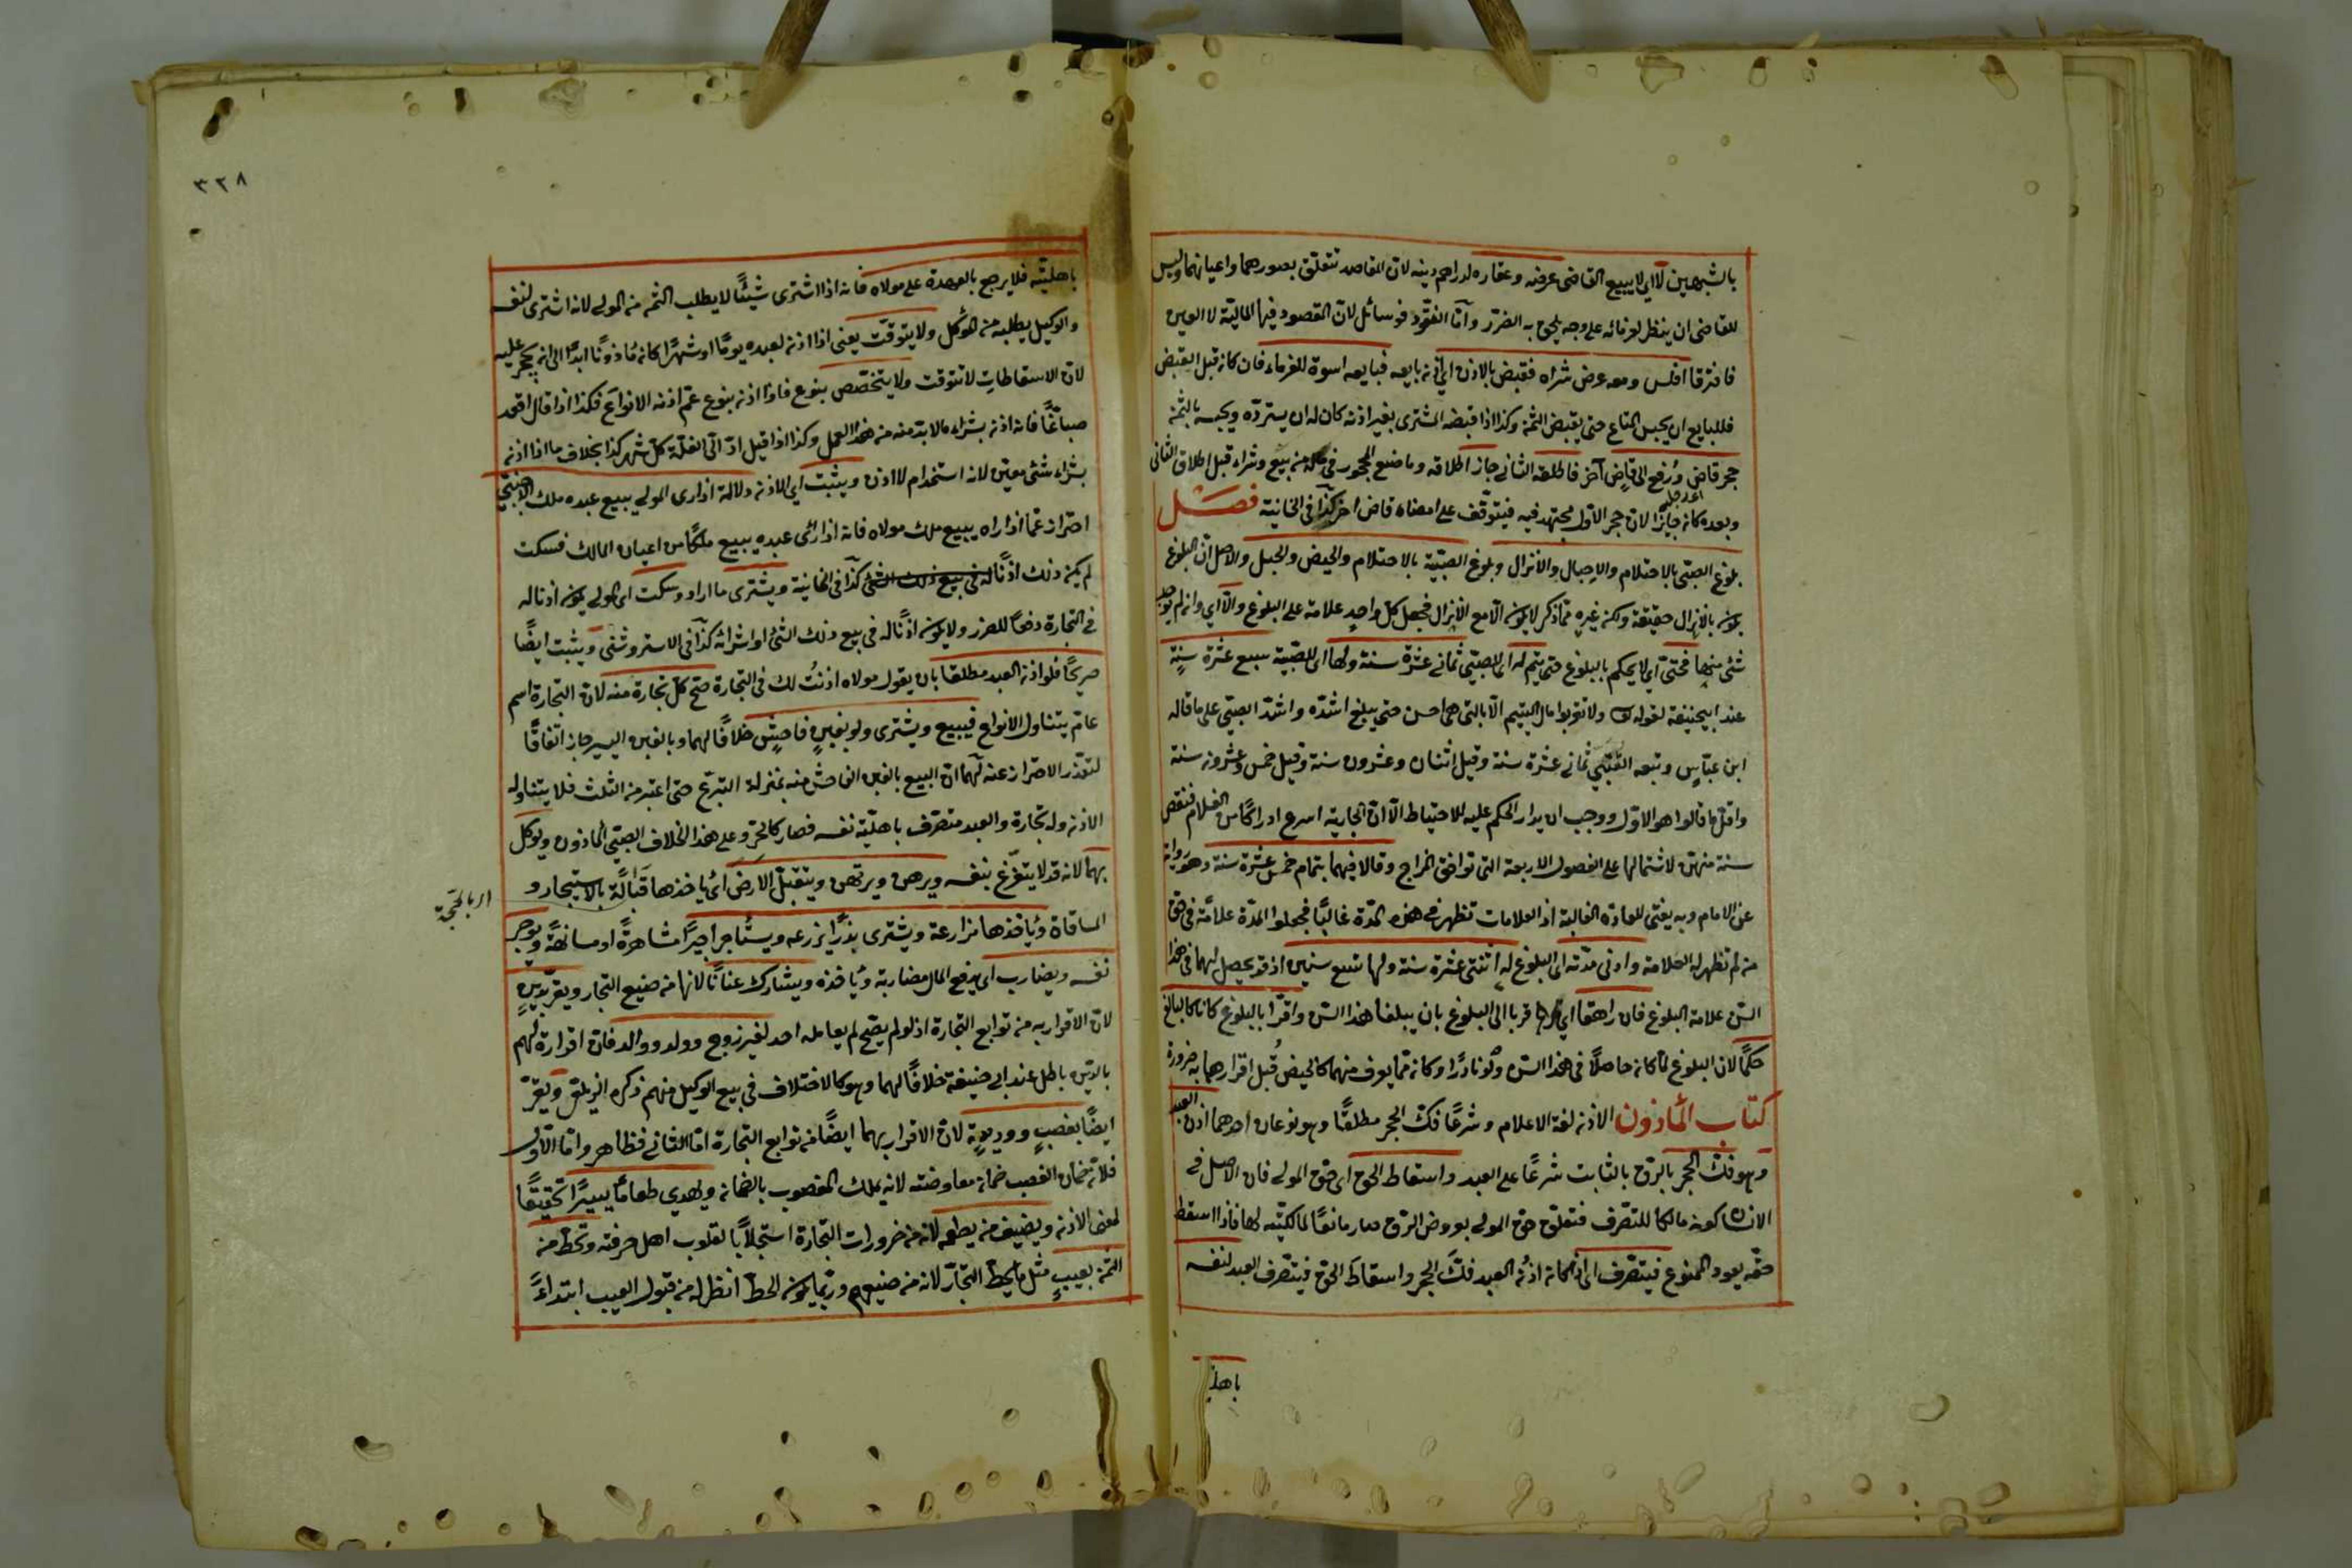 بالشبهين لا اي لا يبيع القاضى عرضه وعقاره لدراهم دينه لان المقاصد تتعلق بصورهما واعيانهما وليس
للقاضى ان ينظر لغرمائه على وجه يلحق به الضرر وأما النقود فوسائل لان المقصود فيها المالية لا العين
فافترقا افلس ومعه عرض شراه فقبض بالاذن اي اذن بايعه فبايعه اسوة للغرماء فان كان قبل القبض
فللبايع ان يحبس المتاع حتى يقبض الثمن وكذا اذا قبضه المشترى بغير اذنه كان له ان يسترده ويحبسه بالثمن
حجر قاض ورفع الى قاض آخر فاطلقه الثاني جاز اطلاقه وما صنع المحجور في ماله من بيع وشراء قبل اطلاق الثاني
وبعده كان جايزا لان حجر الاول مجتهد فيه فيتوقف على امضاء قاض اخر كذا فى الخانية فصل
بلوغ الصبى بالاحتلام والاحبال والانزال وبلوغ الصبية بالاحتلام والحيض والحبل والاصل ان البلوغ
يكون بالانزال حقيقة ولكن غيره مما ذكر لا يكون الا مع الانزال فجعل كل واحد علامة على البلوغ والا اي وان لم يوجد
شئ منها فحتى اي لا يحكم بالبلوغ حتى يتم له اي للصبي ثماني عشرة سنة ولها اى للصبية سبع عشرة سنة
عند ابيحنيفة لقوله تع ولا تقربوا مال اليتيم الا بالتى هى احسن حتى يبلغ اشده واشد الصبي على ما قاله
ابن عباس وتبعه القتبي ثماني عشرة سنة وقيل اثنان وعشرون سنة وقيل خمس وعشرون سنة
واقل ما قالوا هو الاول ووجب ان يدار الحكم عليه للاحتياط الا ان الجارية اسرع ادراكا من الغلام فنقص
سنة منهن لاشتمالها على الفصول الاربعة التى توافق المزاج وقالا فيهما بتمام خمس عشرة سنة وهو رواية
عن الامام وبه يفتى للعادة الغالبة اذ العلامات تظهر في هذه المدة غالبا فجعلوا المدة علامة فى حق
من لم تظهر له العلامة وادنى مدته اى البلوغ له اثنتى عشرة سنة ولها تسع سنين اذ قد يحصل لهما فى هذا
السن علامة البلوغ فان راهقا اي قربا الى البلوغ بان يبلغا هذا السن واقرا بالبلوغ كانا كالبالغ
حكما لان البلوغ لما كان حاصلا فى هذا السن ولو نادرا وكان مما يعرف منهما كالحيض قبل اقرارهما به ضرورة
كتاب المأذون الاذن لغة الاعلام وشرعا فك الحجر مطلقا وهو نوعان احدهما اذن العبد
وهو فك الحجر بالرق بالثابت شرعا على العبد واسقاط الحق اى حق المولى فان الاصل في
الانسان كونه مالكا للتصرف فتعلق حق المولى بعروض الرق صار مانعا لمالكيته لها فاذا اسقط
حقه يعود الممنوع فيتصرف اى اذا كان اذن العبد فك الحجر واسقاط الحق فيتصرف العبد لنفسه
باهليته
٣٣٨
باهليته فلا يرجع بالعهدة على مولاه فانه اذا اشترى شيئا لا يطلب الثمن من المولى لانه اشترى لنفسه
والوكيل يطلبه من الموكل ولا يتوقت يعنى اذا اذن لعبده يوما او شهرا كان مأذونا ابدا الى ان يحجر عليه
لان الاسقاطات لا تتوقت ولا يتخصص بنوع فاذا اذن بنوع عم اذنه الانواع فكذا اذا قال اقعد
صباغا فانه اذن بشراء ما لا بد منه من هذا العمل وكذا اذا قيل اد الى الغلة كل شهر كذا بخلاف ما اذا اذنه
بشراء شئ معين لانه استخدام لا اذن ويثبت اى الاذن دلالة اذا رى المولى يبيع عبده ملك الاجنبى
احترازا عما اذا راه يبيع ملك مولاه فانه اذا رأى عبده يبيع ملكا من اعيان المالك فسكت
لم يكن ذلك اذنا له فى بيع ذلك الشئ كذا فى الخانية ويشترى ما اراد وسكت اى المولى يكون اذنا له
في التجارة دفعا للضرر ولا يكون اذنا له فى بيع ذلك الشئ او شرائه كذا فى الاستروشنى ويثبت ايضا
صريحا فلو اذن العبد مطلقا بان يقول مولاه اذنت لك فى التجارة صح كل تجارة منه لان التجارة اسم
عام يتناول الانواع فيبيع ويشترى ولو بغبن فاحش خلافا لهما وبالغبن اليسير جاز اتفاقا
لتعذر الاحتراز عنه لهما ان البيع بالغبن الفاحش منه بمنزلة التبرع حتى اعتبر من الثلث فلا يتناوله
الاذن وله تجارة والعبد متصرف باهلية نفسه فصار كالحر وعلى هذا الخلاف الصبي المأذون ويوكل
بهما لانه قد لا يتفرغ بنفسه ويرهن ويرتهن ويتقبل الارض اى يأخذها قبالة بالاستيجار و
المساقاة ويأخذها مزارعة ويشترى بذرا يزرعه ويستأجر اجيرا مشاهرة او مسانهة ويوجر
نفسه ويضارب اى يدفع المال مضاربة ويأخذه ويشارك عنانا لانها من صنيع التجار ويقر بدين
لان الاقرار به من توابع التجارة اذ لو لم يصح لم يعامله احد لغير زوج وولد ووالد فان اقراره لهم
بالدين باطل عند ابي حنيفة خلافا لهما وهو كالاختلاف في بيع الوكيل منهم ذكره الزيلعى ويقر
ايضا بغصب ووديعة لان الاقرار بهما ايضا من توابع التجارة اما الثاني فظاهر واما الاول
فلان ضمان الغصب ضمان معاوضة لانه يملك المغصوب بالضمان ويهدي طعاما يسيرا تحقيقا
لمعنى الاذن ويضيف من يطعمه لانه من ضرورات التجارة استجلابا لقلوب اهل حرفته وتحط من
الثمن بعيب مثل ما يحط التجار لانه من صنيعهم وربما يكون الحط انظر له من قبول العيب ابتداء